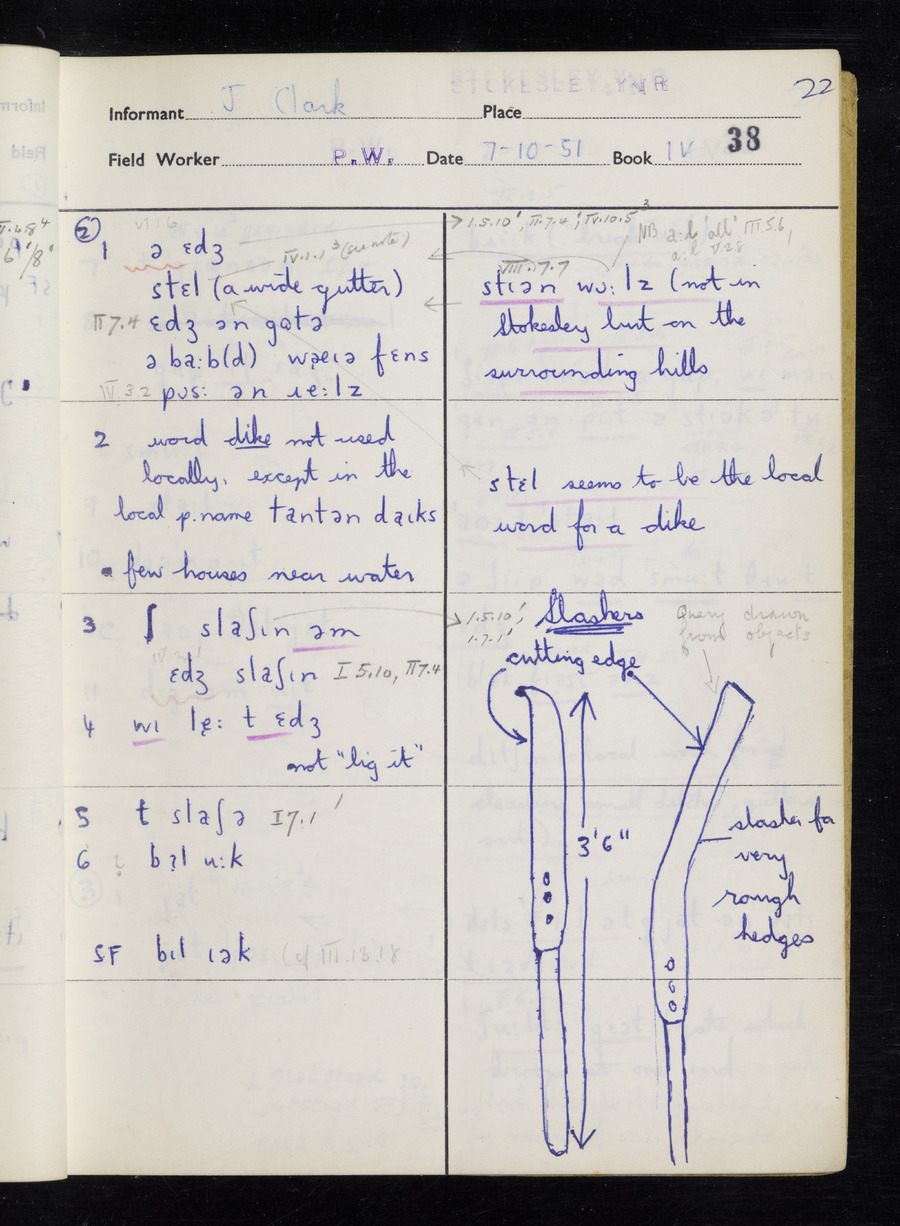 STOKESLEY, YNR
22
Informant J Clark Place
38
Field Worker P.W. Date 7-10-51 Book IV
2
VI.6
1 ə ɛdʒ
IV.1.1 3 (see note)
stɛl (a wide gutter)
II 7.4 ɛdʒ ən gɒtə
ə ba:b(d) wɒɛɪə fɛns
IV.3.2 pʊs: ən ɹe:lz
1.5.10', II.7.4', IV.10.5 3
NB a:l 'all' III.5.6,
a:l V.2.8
VIII.7.7
stɪən wɔ:lz (not in
Stokesley but on the
surrounding hills
2 word dike not used
locally, except in the
local p.name tantən daɪks
few houses near water
stɛl seems to be the local
word for a dike
3 ʃ slaʃɪn əm
ɛdʒ slaʃɪn I 5.10, II 7.4
4 wɪ lɛ̣: t ɛdʒ
not "lig it"
1.5.10',
1.7.1'
Slashers
Query drawn
from objects
cutting edge
3'6"
slasher for
very
rough
hedges
5 t slaʃə I 7.1'
6 bɪ̣l u:k
SF bɪl ɪək (cf III.13.18